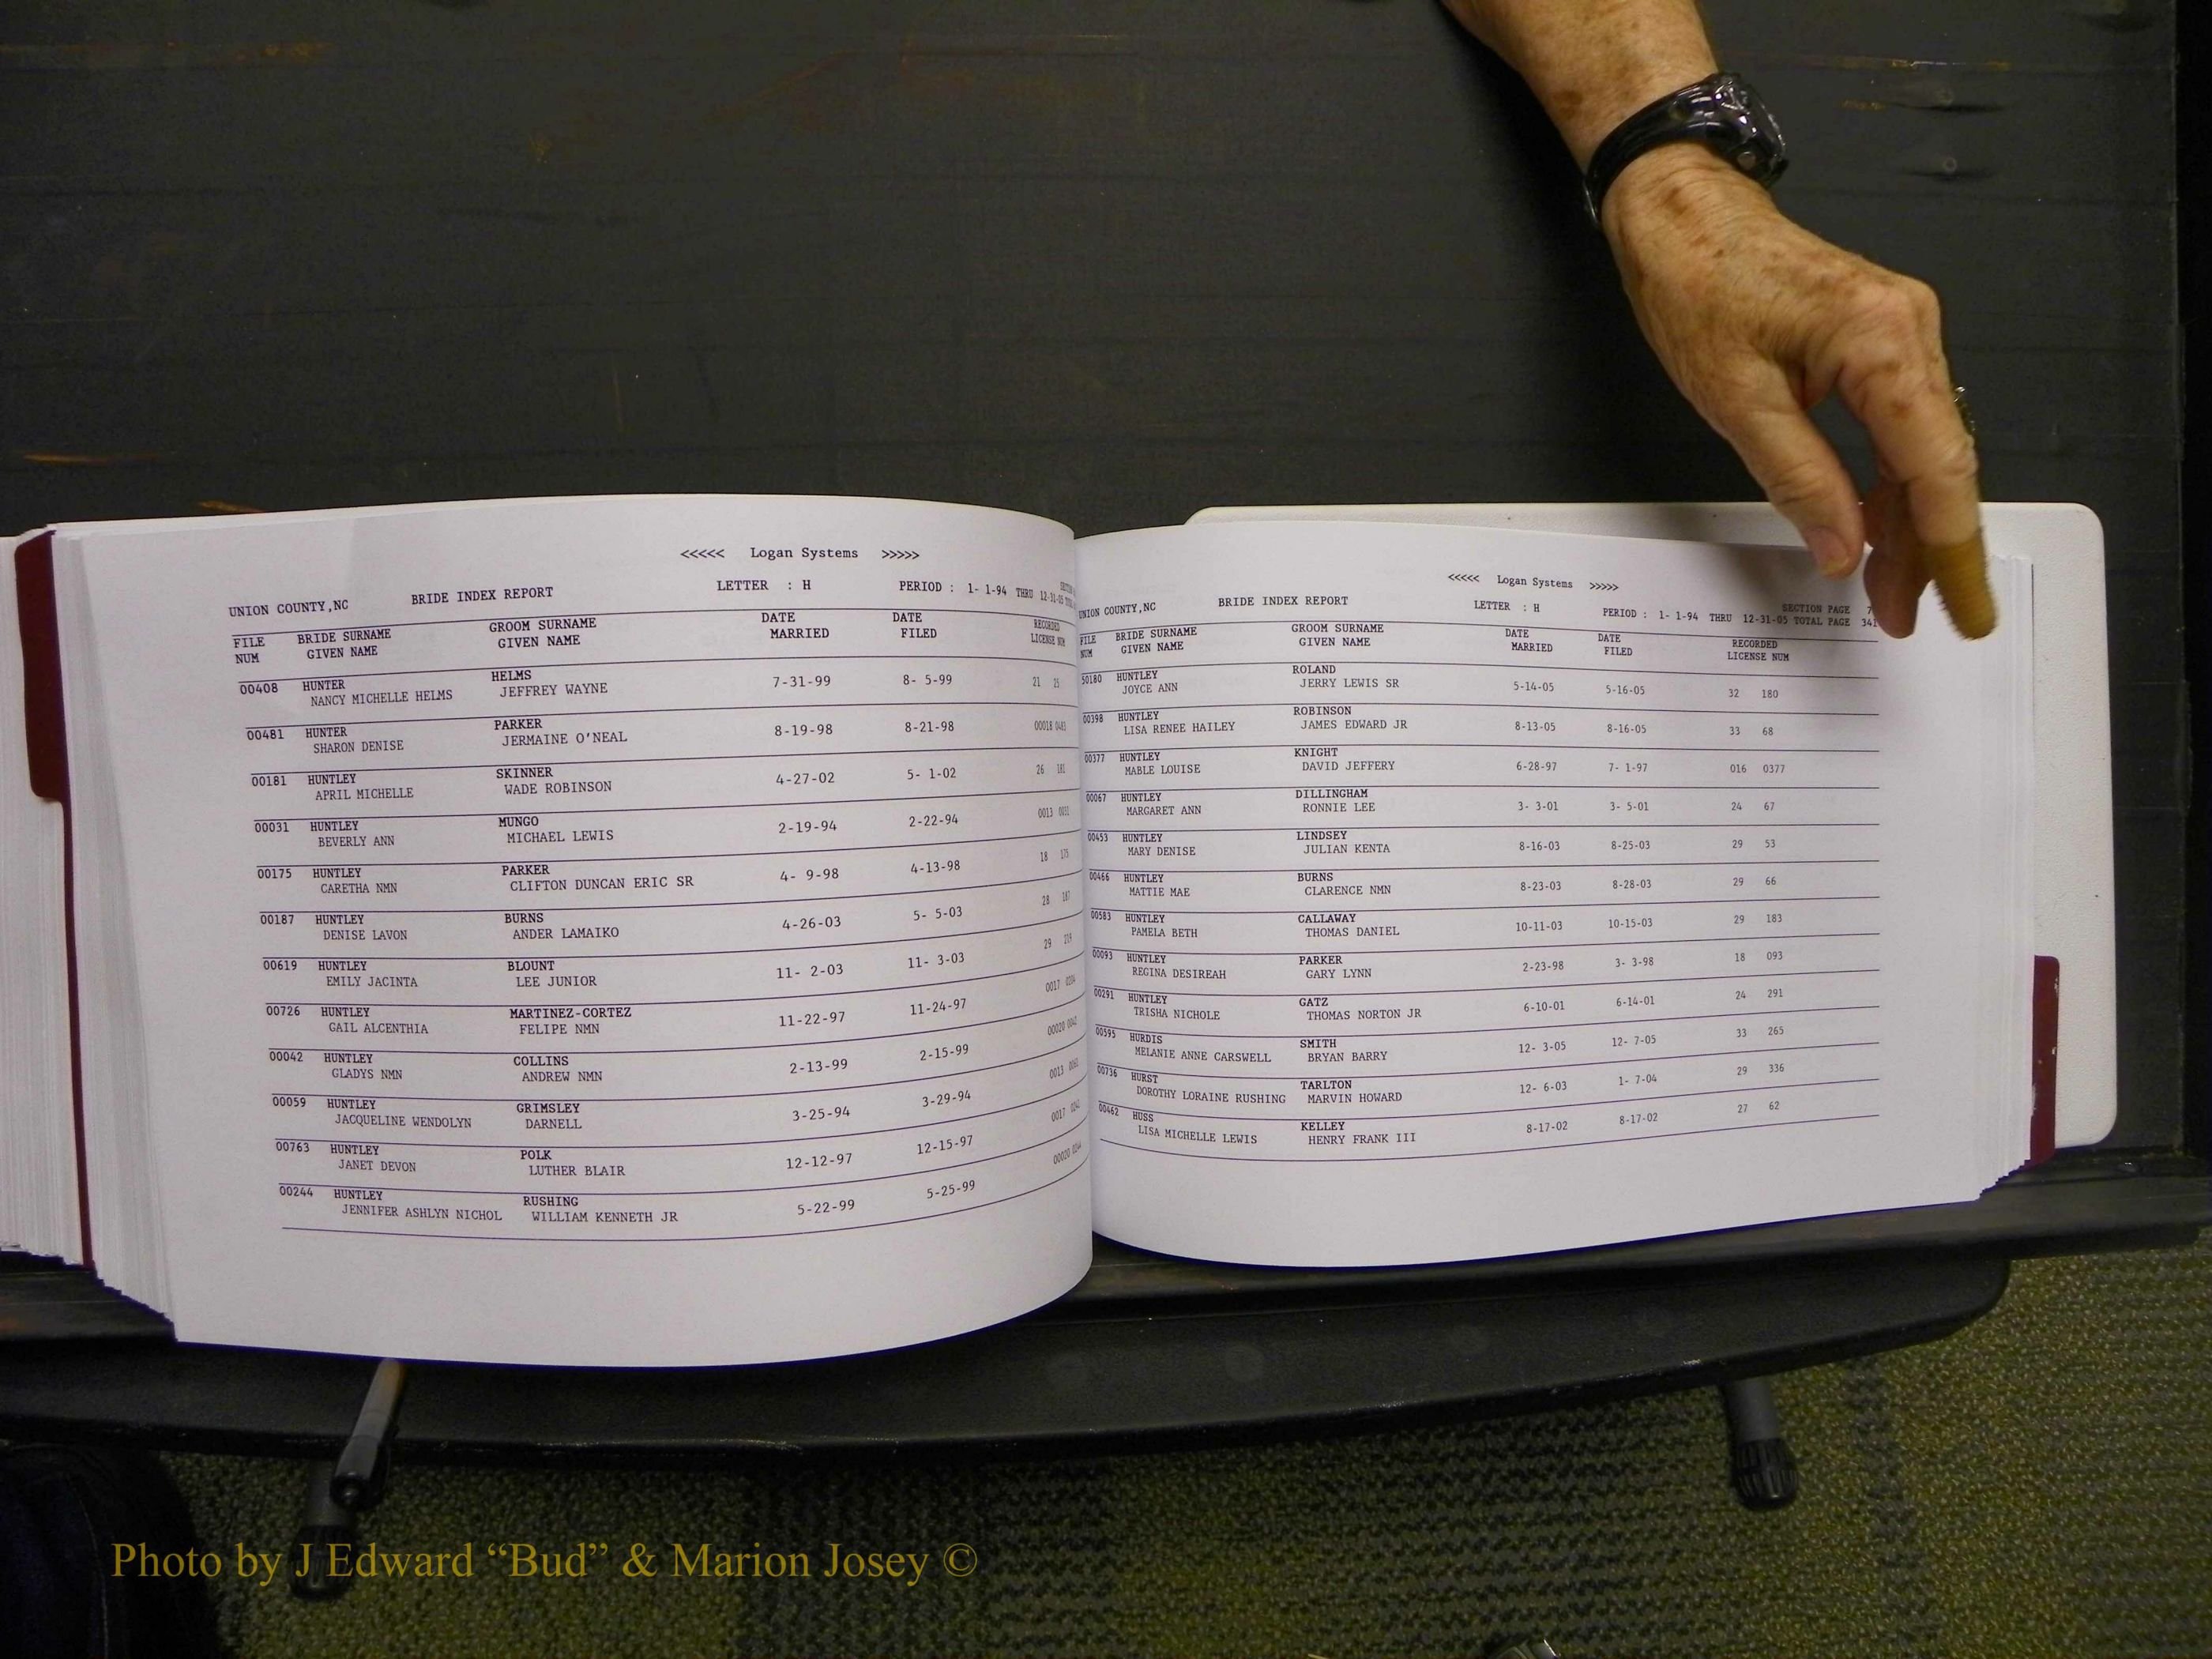 <<<<< Logan Systems >>>>>
UNION COUNTY,NC BRIDE INDEX REPORT LETTER : H PERIOD : 1- 1-94 THRU 12-31-05
FILE BRIDE SURNAME GROOM SURNAME DATE DATE RECORDED
NUM GIVEN NAME GIVEN NAME MARRIED FILED LICENSE NUM
00408 HUNTER HELMS 7-31-99 8- 5-99 21 25
NANCY MICHELLE HELMS JEFFREY WAYNE
00481 HUNTER PARKER 8-19-98 8-21-98 00018
SHARON DENISE JERMAINE O'NEAL
00181 HUNTLEY SKINNER 4-27-02 5- 1-02 26 181
APRIL MICHELLE WADE ROBINSON
00031 HUNTLEY MUNGO 2-19-94 2-22-94 0013 0031
BEVERLY ANN MICHAEL LEWIS
00175 HUNTLEY PARKER 4- 9-98 4-13-98 18 175
CARETHA NMN CLIFTON DUNCAN ERIC SR
00187 HUNTLEY BURNS 4-26-03 5- 5-03 28 187
DENISE LAVON ANDER LAMAIKO
00619 HUNTLEY BLOUNT 11- 2-03 11- 3-03 29 219
EMILY JACINTA LEE JUNIOR
00726 HUNTLEY MARTINEZ-CORTEZ 11-22-97 11-24-97 0017
GAIL ALCENTHIA FELIPE NMN
00042 HUNTLEY COLLINS 2-13-99 2-15-99 00020 0042
GLADYS NMN ANDREW NMN
00059 HUNTLEY GRIMSLEY 3-25-94 3-29-94 0013
JACQUELINE WENDOLYN DARNELL
00763 HUNTLEY POLK 12-12-97 12-15-97 0017
JANET DEVON LUTHER BLAIR
00244 HUNTLEY RUSHING 5-22-99 5-25-99 00020
JENNIFER ASHLYN NICHOL WILLIAM KENNETH JR
<<<<< Logan Systems >>>>>
SECTION PAGE 7
UNION COUNTY,NC BRIDE INDEX REPORT LETTER : H PERIOD : 1- 1-94 THRU 12-31-05 TOTAL PAGE 341
FILE BRIDE SURNAME GROOM SURNAME DATE DATE RECORDED
NUM GIVEN NAME GIVEN NAME MARRIED FILED LICENSE NUM
50180 HUNTLEY ROLAND 5-14-05 5-16-05 32 180
JOYCE ANN JERRY LEWIS SR
00398 HUNTLEY ROBINSON 8-13-05 8-16-05 33 68
LISA RENEE HAILEY JAMES EDWARD JR
00377 HUNTLEY KNIGHT 6-28-97 7- 1-97 016 0377
MABLE LOUISE DAVID JEFFERY
00067 HUNTLEY DILLINGHAM 3- 3-01 3- 5-01 24 67
MARGARET ANN RONNIE LEE
00453 HUNTLEY LINDSEY 8-16-03 8-25-03 29 53
MARY DENISE JULIAN KENTA
00466 HUNTLEY BURNS 8-23-03 8-28-03 29 66
MATTIE MAE CLARENCE NMN
00583 HUNTLEY CALLAWAY 10-11-03 10-15-03 29 183
PAMELA BETH THOMAS DANIEL
00093 HUNTLEY PARKER 2-23-98 3- 3-98 18 093
REGINA DESIREAH GARY LYNN
00291 HUNTLEY GATZ 6-10-01 6-14-01 24 291
TRISHA NICHOLE THOMAS NORTON JR
00595 HURDIS SMITH 12- 3-05 12- 7-05 33 265
MELANIE ANNE CARSWELL BRYAN BARRY
00736 HURST TARLTON 12- 6-03 1- 7-04 29 336
DOROTHY LORAINE RUSHING MARVIN HOWARD
00462 HUSS KELLEY 8-17-02 8-17-02 27 62
LISA MICHELLE LEWIS HENRY FRANK III
Photo by J Edward “Bud” & Marion Josey ©